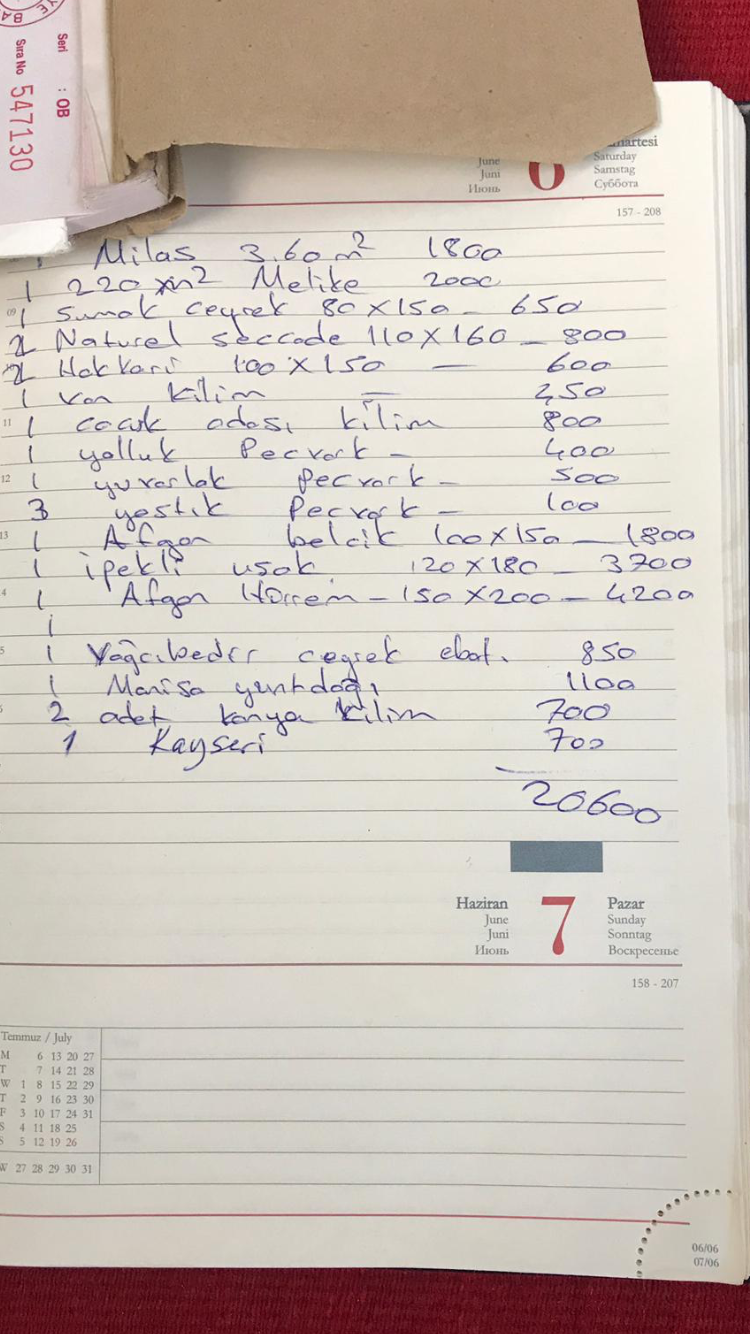 Seri : OB
Sıra No 547130
June
Juni
Июнь
6
Saturday
Samstag
Суббота
157 - 208
1 Milas 3.60 m² 1800
1 220 m² Melike 2000
09 1 Sumak ceyrek 80 X 150 - 650
2 Naturel seccade 110 X 160 - 800
2 Hakkari 100 X 150 - 600
1 Van kilim - 250
11 1 cocuk odası kilim 800
1 yolluk Pecvork - 400
12 1 yuvarlak pecvork - 500
3 yastık Pecvork - 100
13 1 Afgan belcik 100 X 150 - 1800
1 ipekli usak 120 X 180 - 3700
1 Afgan Hürrem - 150 X 200 - 4200
1
1 Yağcıbedir ceyrek ebat. 850
1 Manisa yuntdağı 1100
2 adet konya kilim 700
1 Kayseri 700
20600
Haziran
June
Juni
Июнь
7
Pazar
Sunday
Sonntag
Воскресенье
158 - 207
Temmuz / July
M 6 13 20 27
T 7 14 21 28
W 1 8 15 22 29
T 2 9 16 23 30
F 3 10 17 24 31
S 4 11 18 25
S 5 12 19 26
W 27 28 29 30 31
06/06
07/06